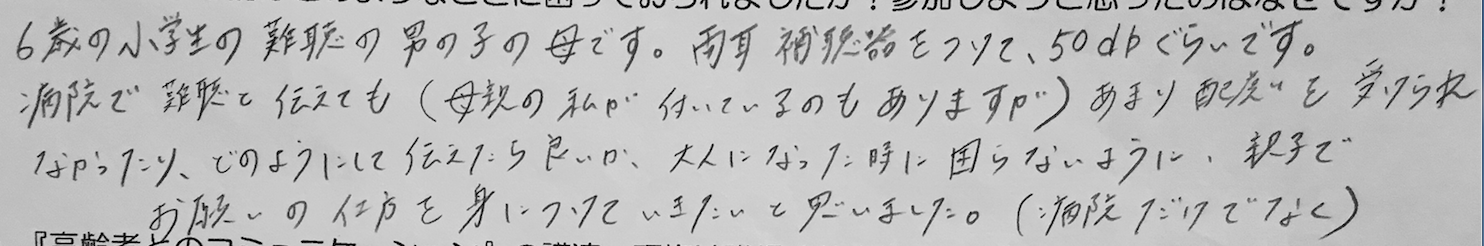 参加しようと思ったのはなぜですか？
6歳の小学生の難聴の男の子の母です。両耳補聴器をつけて、50dbぐらいです。
病院で難聴と伝えても(母親の私が付いているのもありますが)あまり配慮を受けられ
なかったり、どのようにして伝えたら良いか、大人になった時に困らないように、親子で
お願いの仕方を身につけていきたいと思いました。(病院だけでなく)